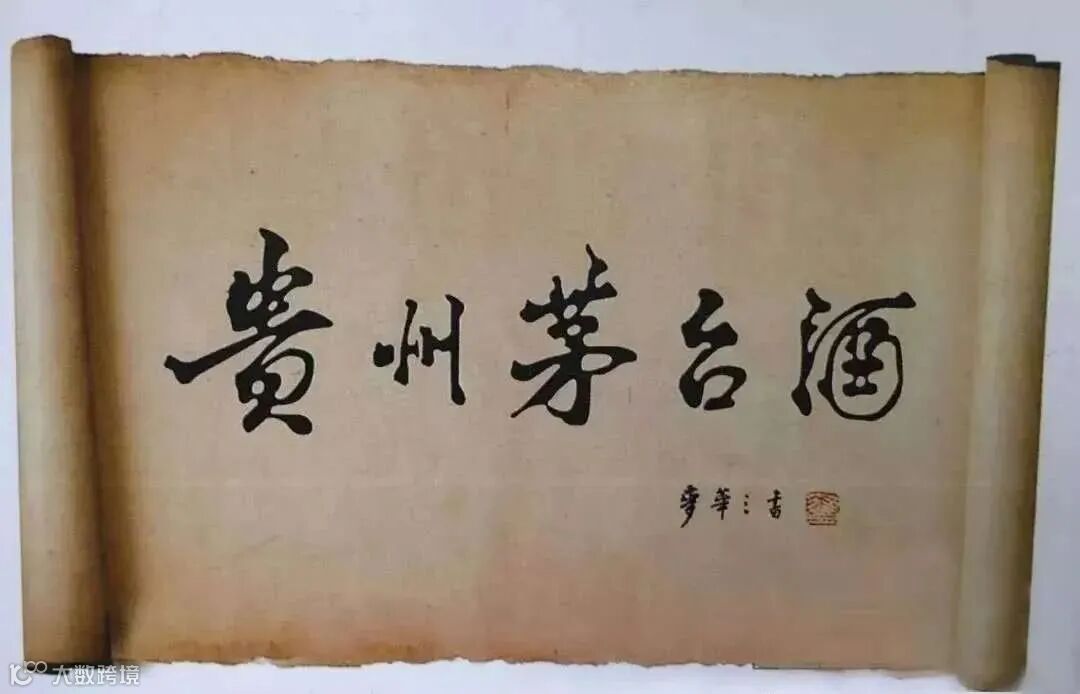 貴州茅台酒
麥華三書
大数跨境